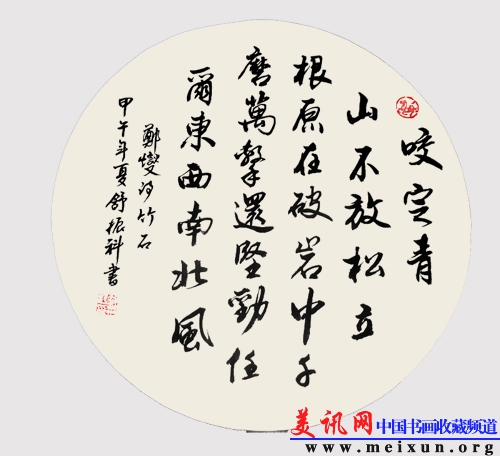 咬定青
山不放松立
根原在破岩中千
磨萬擊還堅勁任
爾東西南北風
鄭燮诗竹石
甲午年夏舒振科書
美讯网 中国书画收藏频道
www.meixun.org